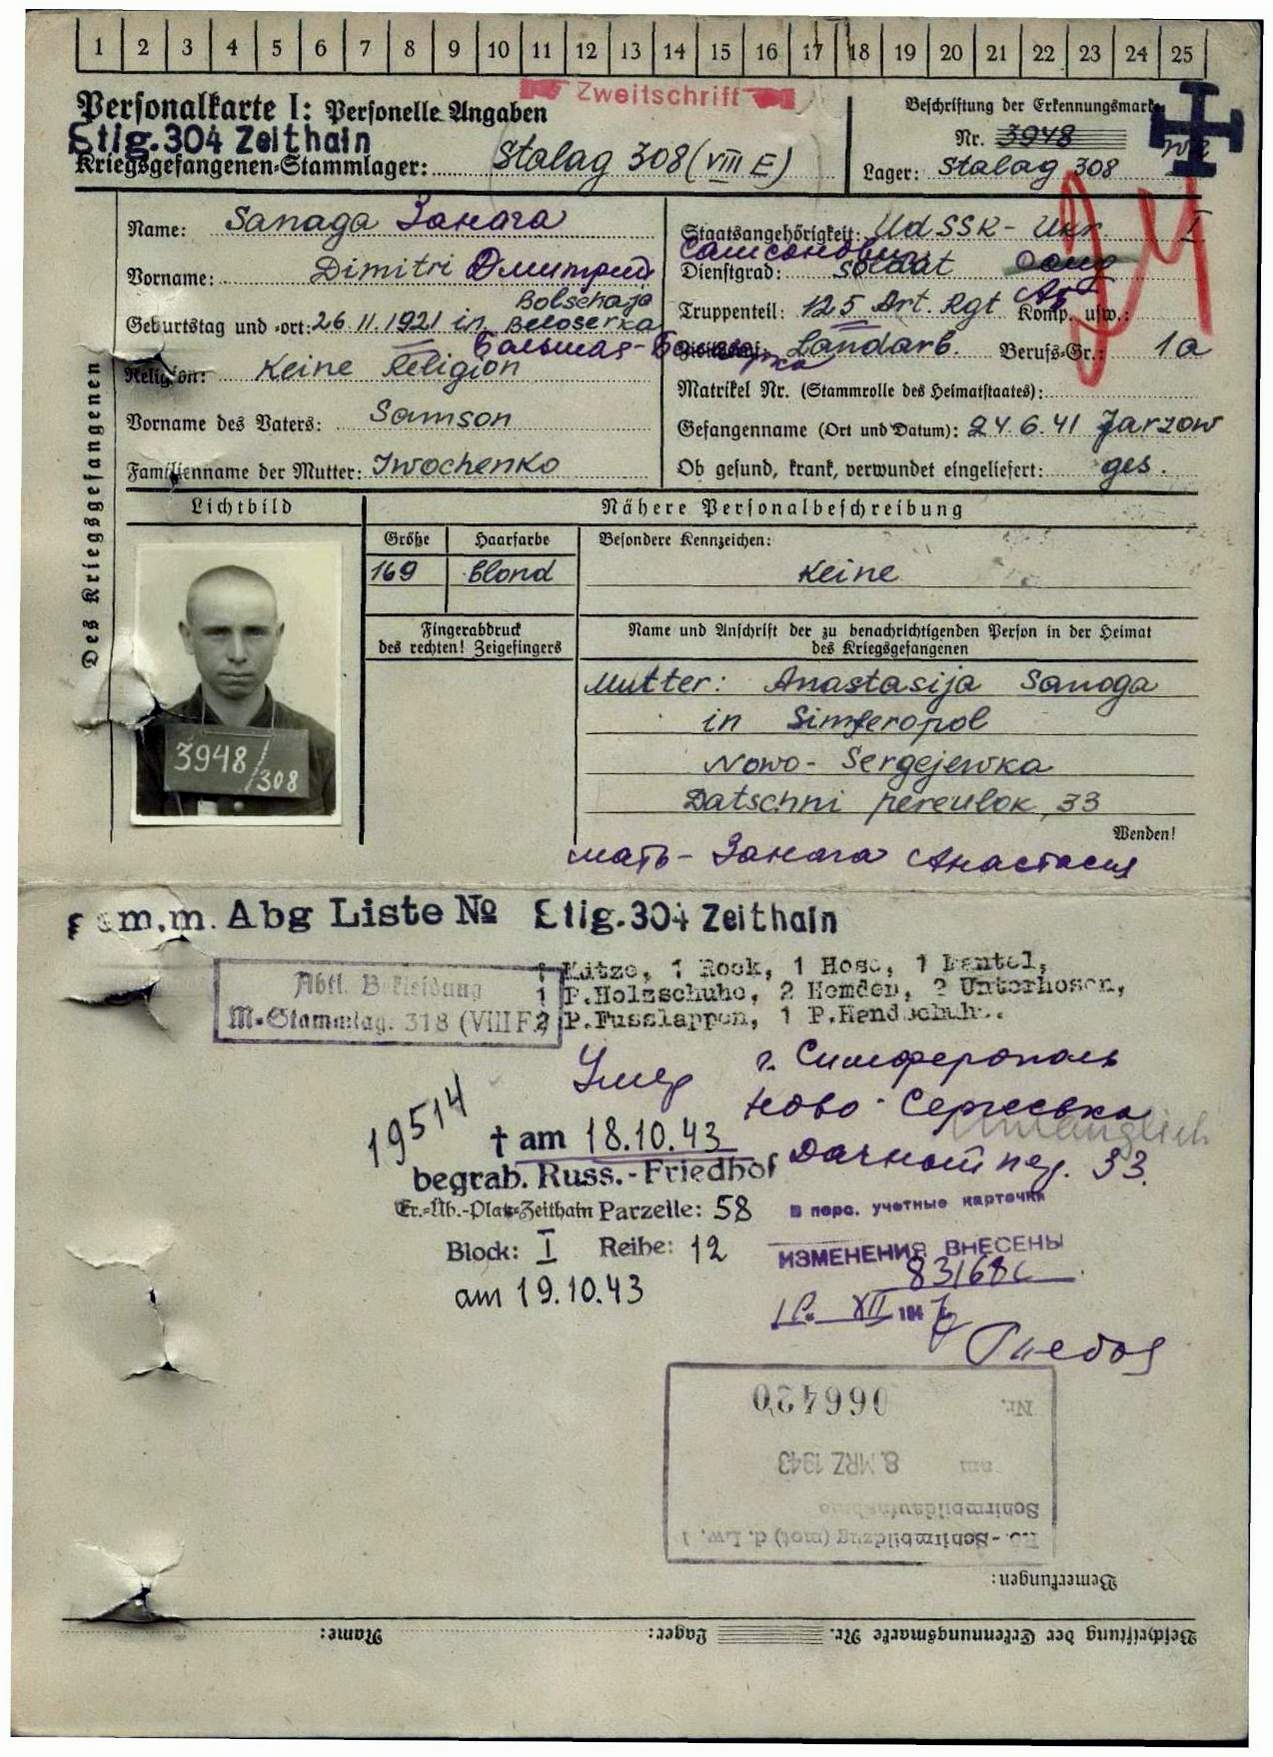 1 2 3 4 5 6 7 8 9 10 11 12 13 14 15 16 17 18 19 20 21 22 23 24 25
Zweitschrift
Personalkarte I: Personelle Angaben
Beschriftung der Erkennungsmarke
Stlg. 304 Zeithain
Nr. 3948
Kriegsgefangenen-Stammlager: Stalag 308 (VIII E)
Lager: Stalag 308
Des Kriegsgefangenen
Name: Sanaga Занага
Staatsangehörigkeit: UdSSR - Ukr.
Самсонович
Vorname: Dimitri Дмитрий
Dienstgrad: Soldat
Bolschaja
Geburtstag und -ort: 26 11. 1921 in Beloserka
Truppenteil: 125 Art. Rgt Komp. usw.:
Большая-
Landarb. Berufs-Gr.: 1a
Religion: Keine Religion
Matrikel Nr. (Stammrolle des Heimatstaates):
Vorname des Vaters: Samson
Gefangenname (Ort und Datum): 24. 6. 41 Jarzow
Familienname der Mutter: Iwochenko
Ob gesund, krank, verwundet eingeliefert: ges.
Lichtbild
Nähere Personalbeschreibung
Größe Haarfarbe
Besondere Kennzeichen:
169 blond
Keine
3948/308
Fingerabdruck
des rechten! Zeigefingers
Name und Anschrift der zu benachrichtigenden Person in der Heimat
des Kriegsgefangenen
Mutter: Anastasija Sanoga
in Simferopol
Nowo-Sergejewka
Datschni pereulok, 33
Wenden!
мать - Занага Анастасия
m.m. Abg Liste No Stlg. 304 Zeithain
Abtl. Bekleidung
M-Stammlag. 318 (VIII F)
1 Mütze, 1 Rock, 1 Hose, 1 Mantel,
1 P.Holzschuhe, 2 Hemden, 2 Unterhosen,
2 P.Fusslappen, 1 P.Handschuhe.
Умер
г. Симферополь
Ново-Сергеевка
19514
† am 18.10.43
Дачный пер. 33.
begrab. Russ.-Friedhof
Tr.-Üb.-Platz-Zeithain Parzelle: 58
Block: I Reihe: 12
am 19.10.43
В перс. учетные карточки
ИЗМЕНЕНИЯ ВНЕСЕНЫ
XII 194
Nr. 066420
am 8. MRZ 1943
Schirmbildaufnahme
Rö.-Schirmbildzug (mot) d. Lw. 1
Bemerkungen:
Beschriftung der Erkennungsmarke Nr. Lager: Name: